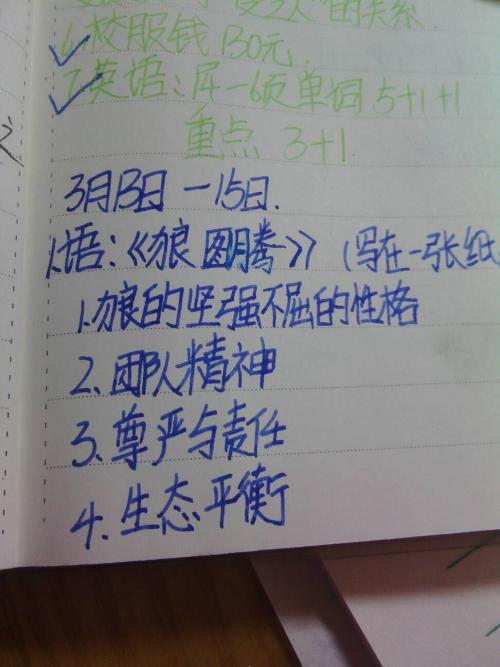 的关系
6.校服钱130元.
7.英语:库一6页单词5+1+1
重点 3+1
3月13日-15日.
1.语:《狼图腾》(写在一张纸
1.狼的坚强不屈的性格
2、团队精神
3、尊严与责任
4.生态平衡